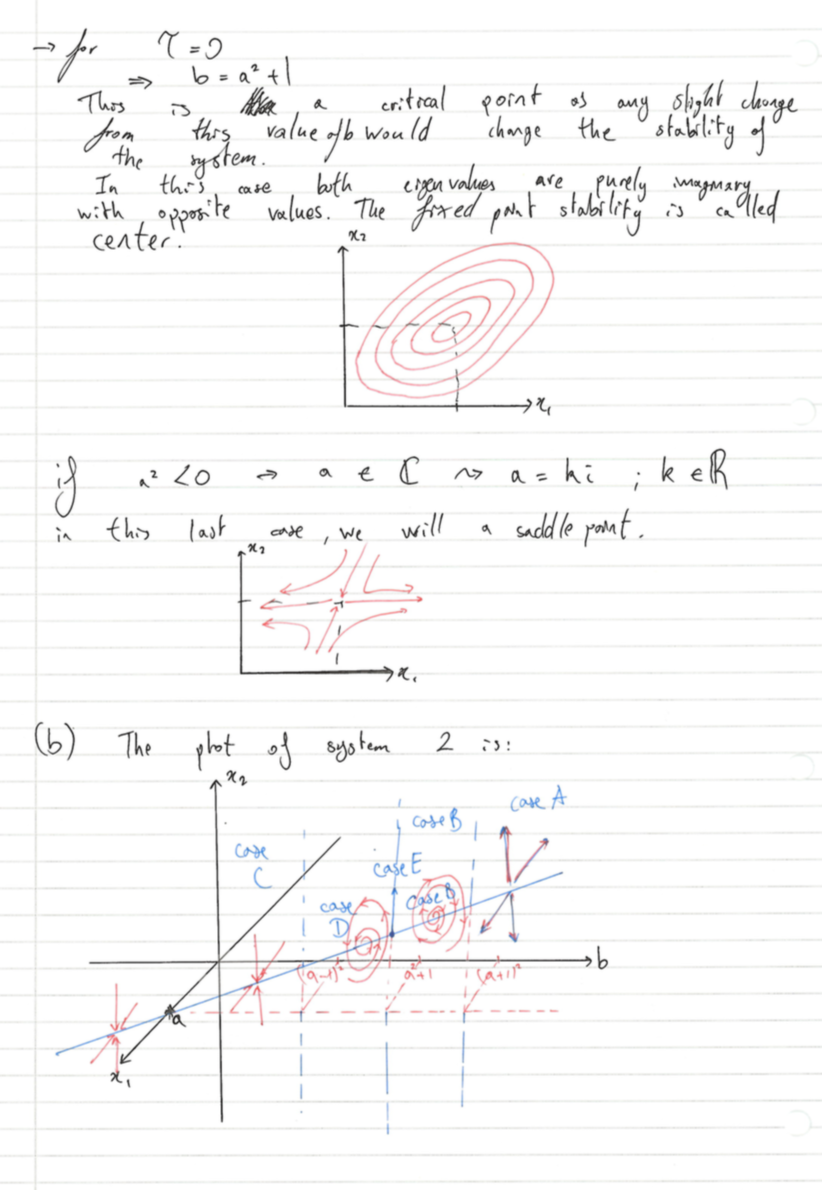 → for τ = 0
⇒ b = a² + 1
This is a critical point as any slight change
from this value of b would change the stability of
the system.
In this case both eigenvalues are purely imaginary
with opposite values. The fixed point stability is called
center.
x₂
x₁
if a² < 0 → a ∈ ℂ ⇝ a = ki ; k ∈ ℝ
in this last case, we will a saddle point.
x₂
x₁
(b) The plot of system 2 is:
x₂
case A
case B
case C
case E
case B
case D
b
(a-1)²
a²+1
(a+1)²
a
x₁